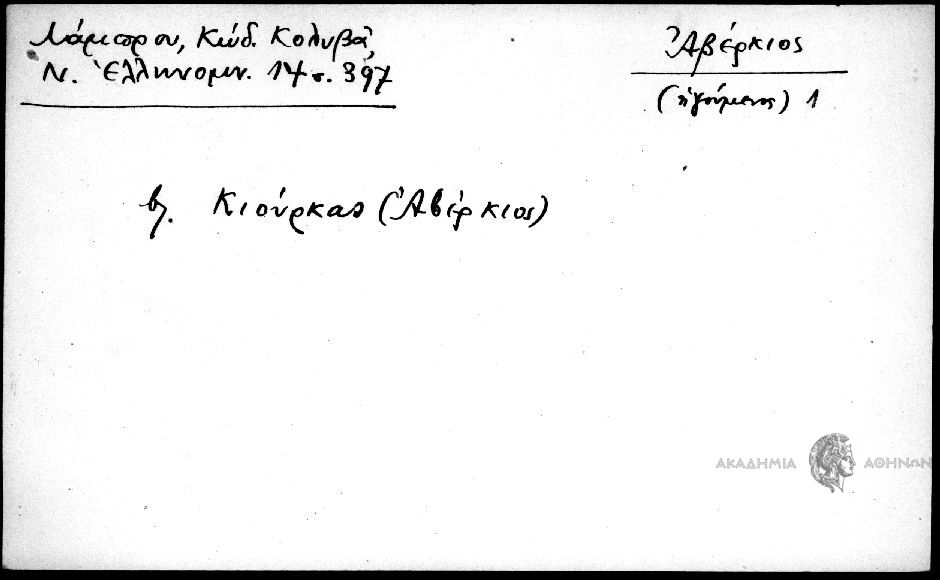 Λάμπρου, Κώδ. Κολυβᾶ,
Ν. Ἑλληνομν. 14 σ. 397
Ἀβέρκιος
(ἡγούμενος) 1
βλ. Κιούρκας (Ἀβέρκιος)
ΑΚΑΔΗΜΙΑ ΑΘΗΝΩΝ